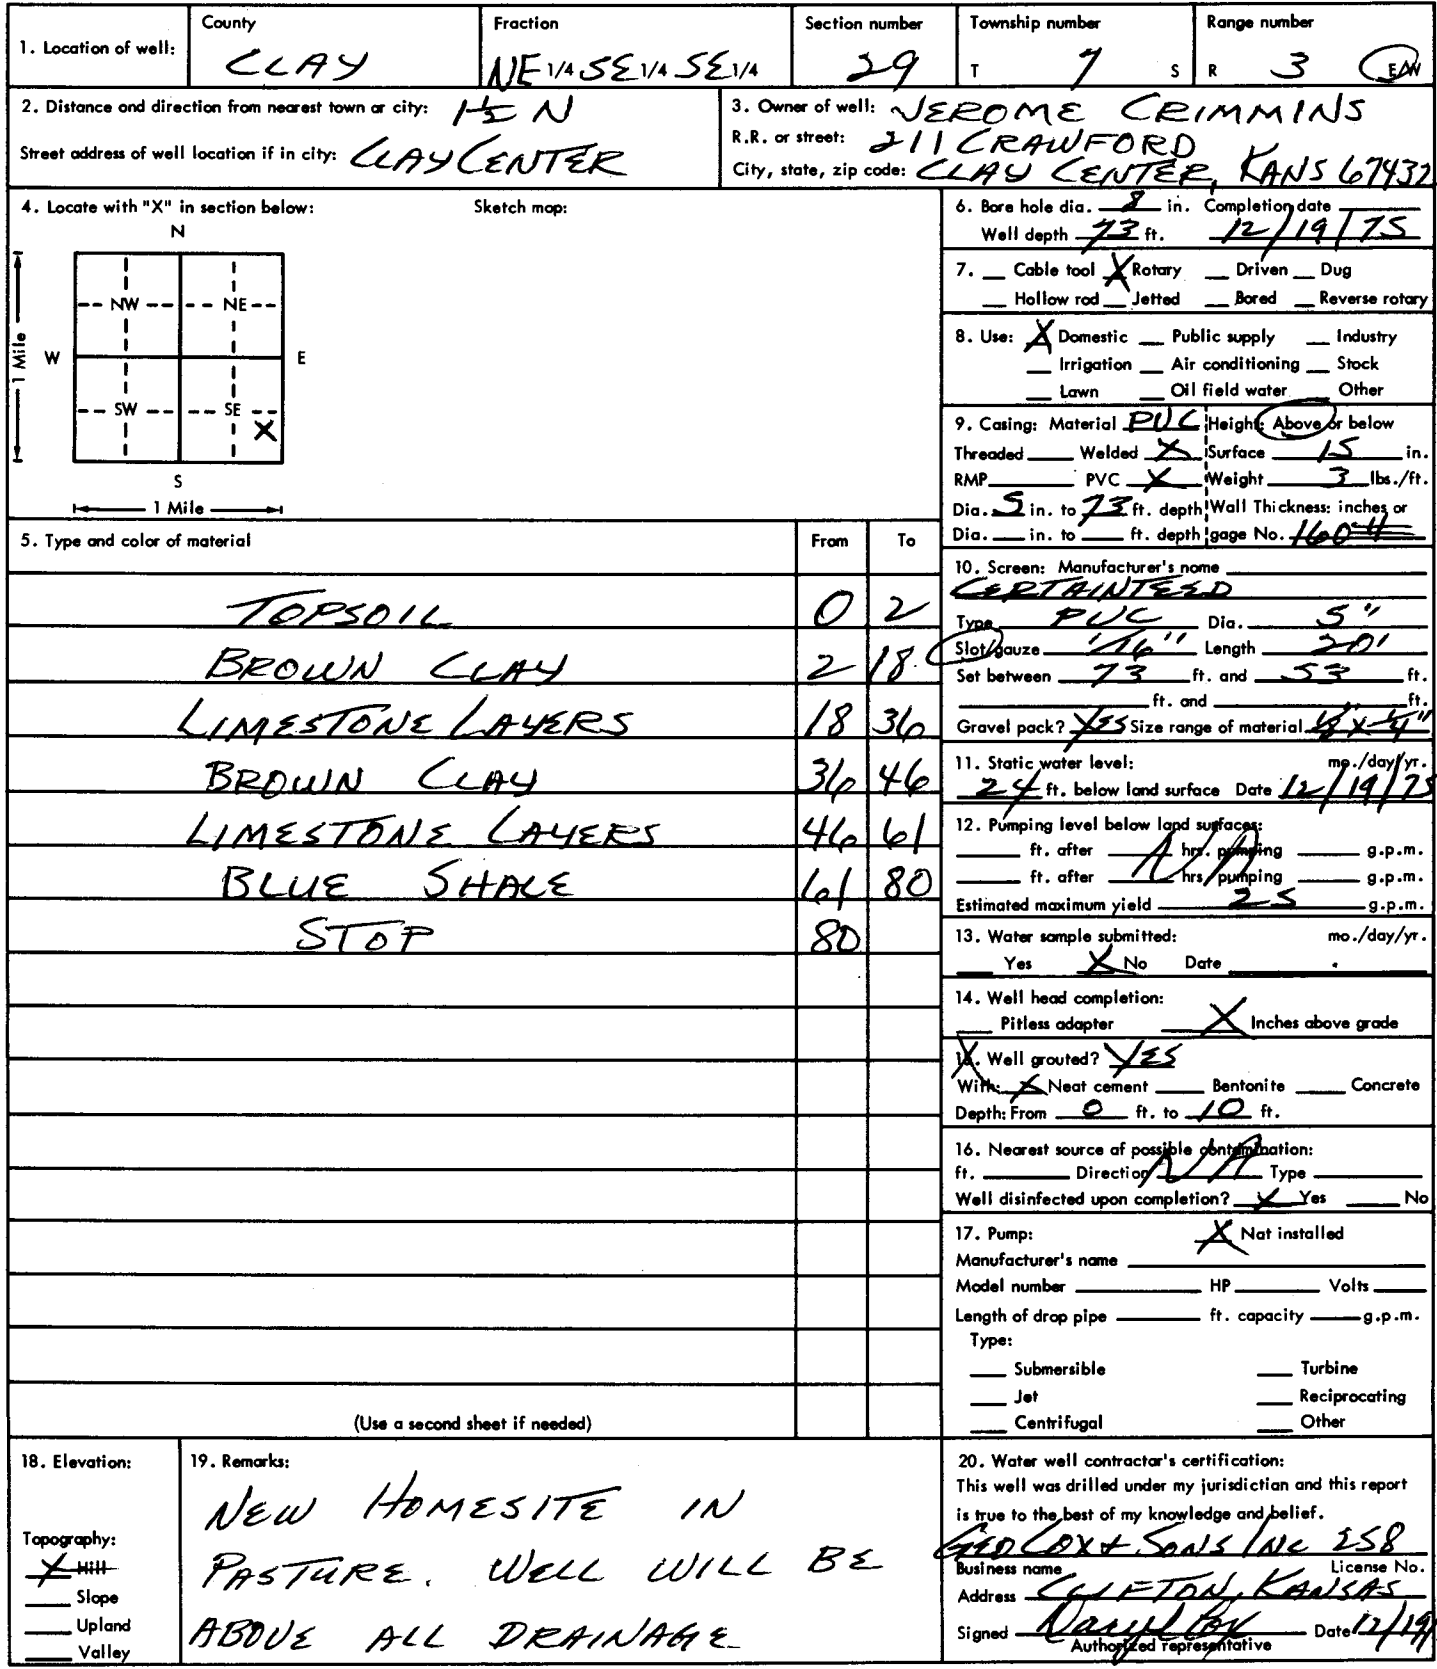 1. Location of well:
County
CLAY
Fraction
NE 1/4 SE 1/4 SE 1/4
Section number
29
Township number
T 7 S
Range number
R 3 E/W
2. Distance and direction from nearest town or city: 1½ N
Street address of well location if in city: CLAY CENTER
3. Owner of well: JEROME CRIMMINS
R.R. or street: 211 CRAWFORD
City, state, zip code: CLAY CENTER, KANS 67432
4. Locate with "X" in section below:
Sketch map:
N
NW NE
W E
1 Mile
SW SE
X
S
1 Mile
5. Type and color of material From To
TOPSOIL 0 2
BROWN CLAY 2 18
LIMESTONE LAYERS 18 36
BROWN CLAY 36 46
LIMESTONE LAYERS 46 61
BLUE SHALE 61 80
STOP 80
(Use a second sheet if needed)
6. Bore hole dia. 8 in. Completion date
Well depth 73 ft. 12/19/75
7. Cable tool X Rotary Driven Dug
Hollow rod Jetted Bored Reverse rotary
8. Use: X Domestic Public supply Industry
Irrigation Air conditioning Stock
Lawn Oil field water Other
9. Casing: Material PVC Height: Above or below
Threaded Welded X Surface 15 in.
RMP PVC X Weight 3 lbs./ft.
Dia. 5 in. to 73 ft. depth Wall Thickness: inches or
Dia. in. to ft. depth gage No. 160
10. Screen: Manufacturer's name
CERTAINTEED
Type PVC Dia. 5"
Slot/gauze 1/16" Length 20'
Set between 73 ft. and 53 ft.
ft. and ft.
Gravel pack? YES Size range of material 1/8 X 1/4"
11. Static water level: mo./day/yr.
24 ft. below land surface Date 12/19/75
12. Pumping level below land surfaces:
ft. after hrs. pumping g.p.m.
N/A
ft. after hrs. pumping g.p.m.
Estimated maximum yield 25 g.p.m.
13. Water sample submitted: mo./day/yr.
Yes X No Date
14. Well head completion:
Pitless adapter X Inches above grade
15. Well grouted? YES
With: X Neat cement Bentonite Concrete
Depth: From 0 ft. to 10 ft.
16. Nearest source of possible contamination:
ft. Direction N/A Type
Well disinfected upon completion? X Yes No
17. Pump: X Not installed
Manufacturer's name
Model number HP Volts
Length of drop pipe ft. capacity g.p.m.
Type:
Submersible Turbine
Jet Reciprocating
Centrifugal Other
18. Elevation:
Topography:
X Hill
Slope
Upland
Valley
19. Remarks:
NEW HOMESITE IN
PASTURE. WELL WILL BE
ABOVE ALL DRAINAGE
20. Water well contractor's certification:
This well was drilled under my jurisdiction and this report
is true to the best of my knowledge and belief.
GEO COX & SONS INC 258
Business name License No.
Address CLIFTON, KANSAS
Signed Daryl Cox Date 12/19/
Authorized representative